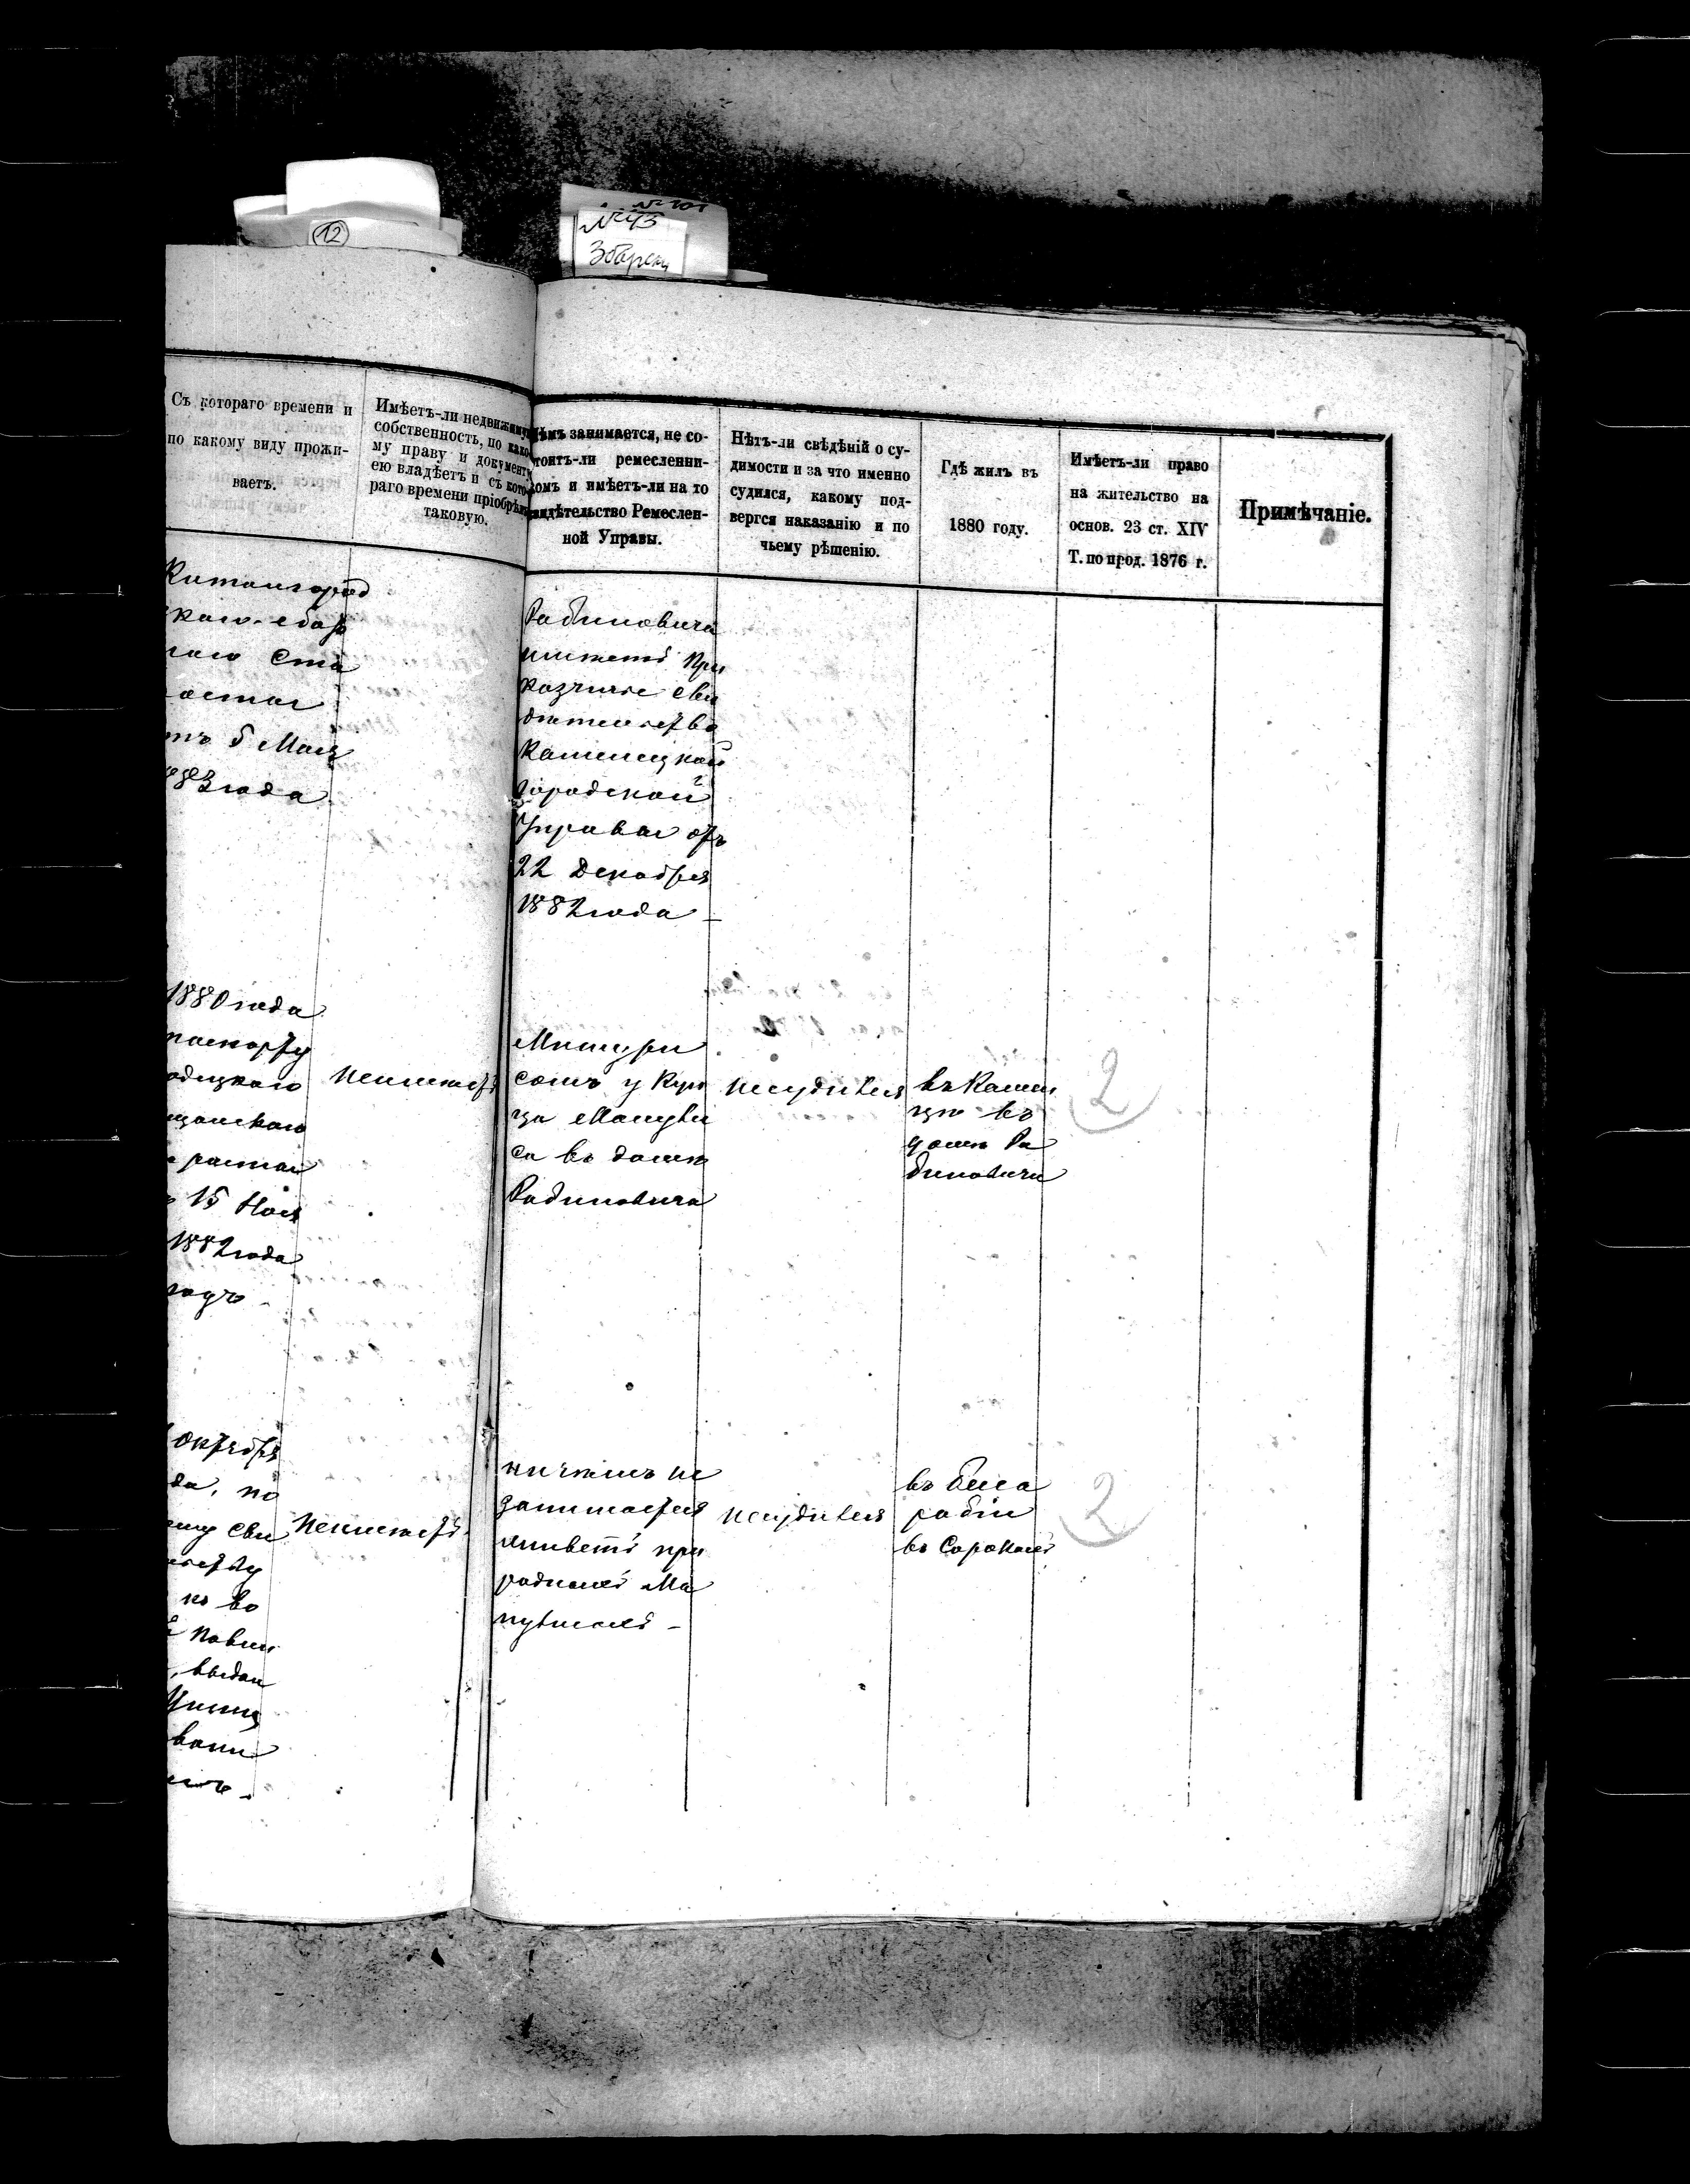 12
№ 101
№ 43
Съ котораго времени и
по какому виду прожи-
ваетъ.
Имѣетъ-ли недвижимую
собственность, по како-
му праву и документу
ею владѣетъ и съ кото-
раго времени пріобрѣлъ
таковую.
Чѣмъ занимается, не со-
стоитъ-ли ремесленни-
комъ и имѣетъ-ли на то
свидѣтельство Ремеслен-
ной Управы.
Нѣтъ-ли свѣдѣній о су-
димости и за что именно
судился, какому под-
вергся наказанію и по
чьему рѣшенію.
Гдѣ жилъ въ
1880 году.
Имѣетъ-ли право
на жительство на
основ. 23 ст. XIV
Т. по прод. 1876 г.
Примѣчаніе.
Китайгород
скаго сбор
наго Ста
росты
отъ 5 Мая
1883 года
Рабиновича
имѣетъ При
казчичье сви
дѣтельство
Каменецкой
городской
Управы отъ
22 Декабря
1882 года
1880 года
паспорту
15 Ноя
1882 года
годъ
неимѣетъ
сомъ у Куп
ца Мануви
са въ домѣ
Рабиновича
несудился
въ Камен
цѣ въ
домѣ Ра
биновича
2
Октября
да, по
ему сви
неимѣетъ
ничѣмъ не
занимается
живетъ при
несудился
въ Бесса
рабіи
въ Сорокахъ
2
къ во
повин
выдан